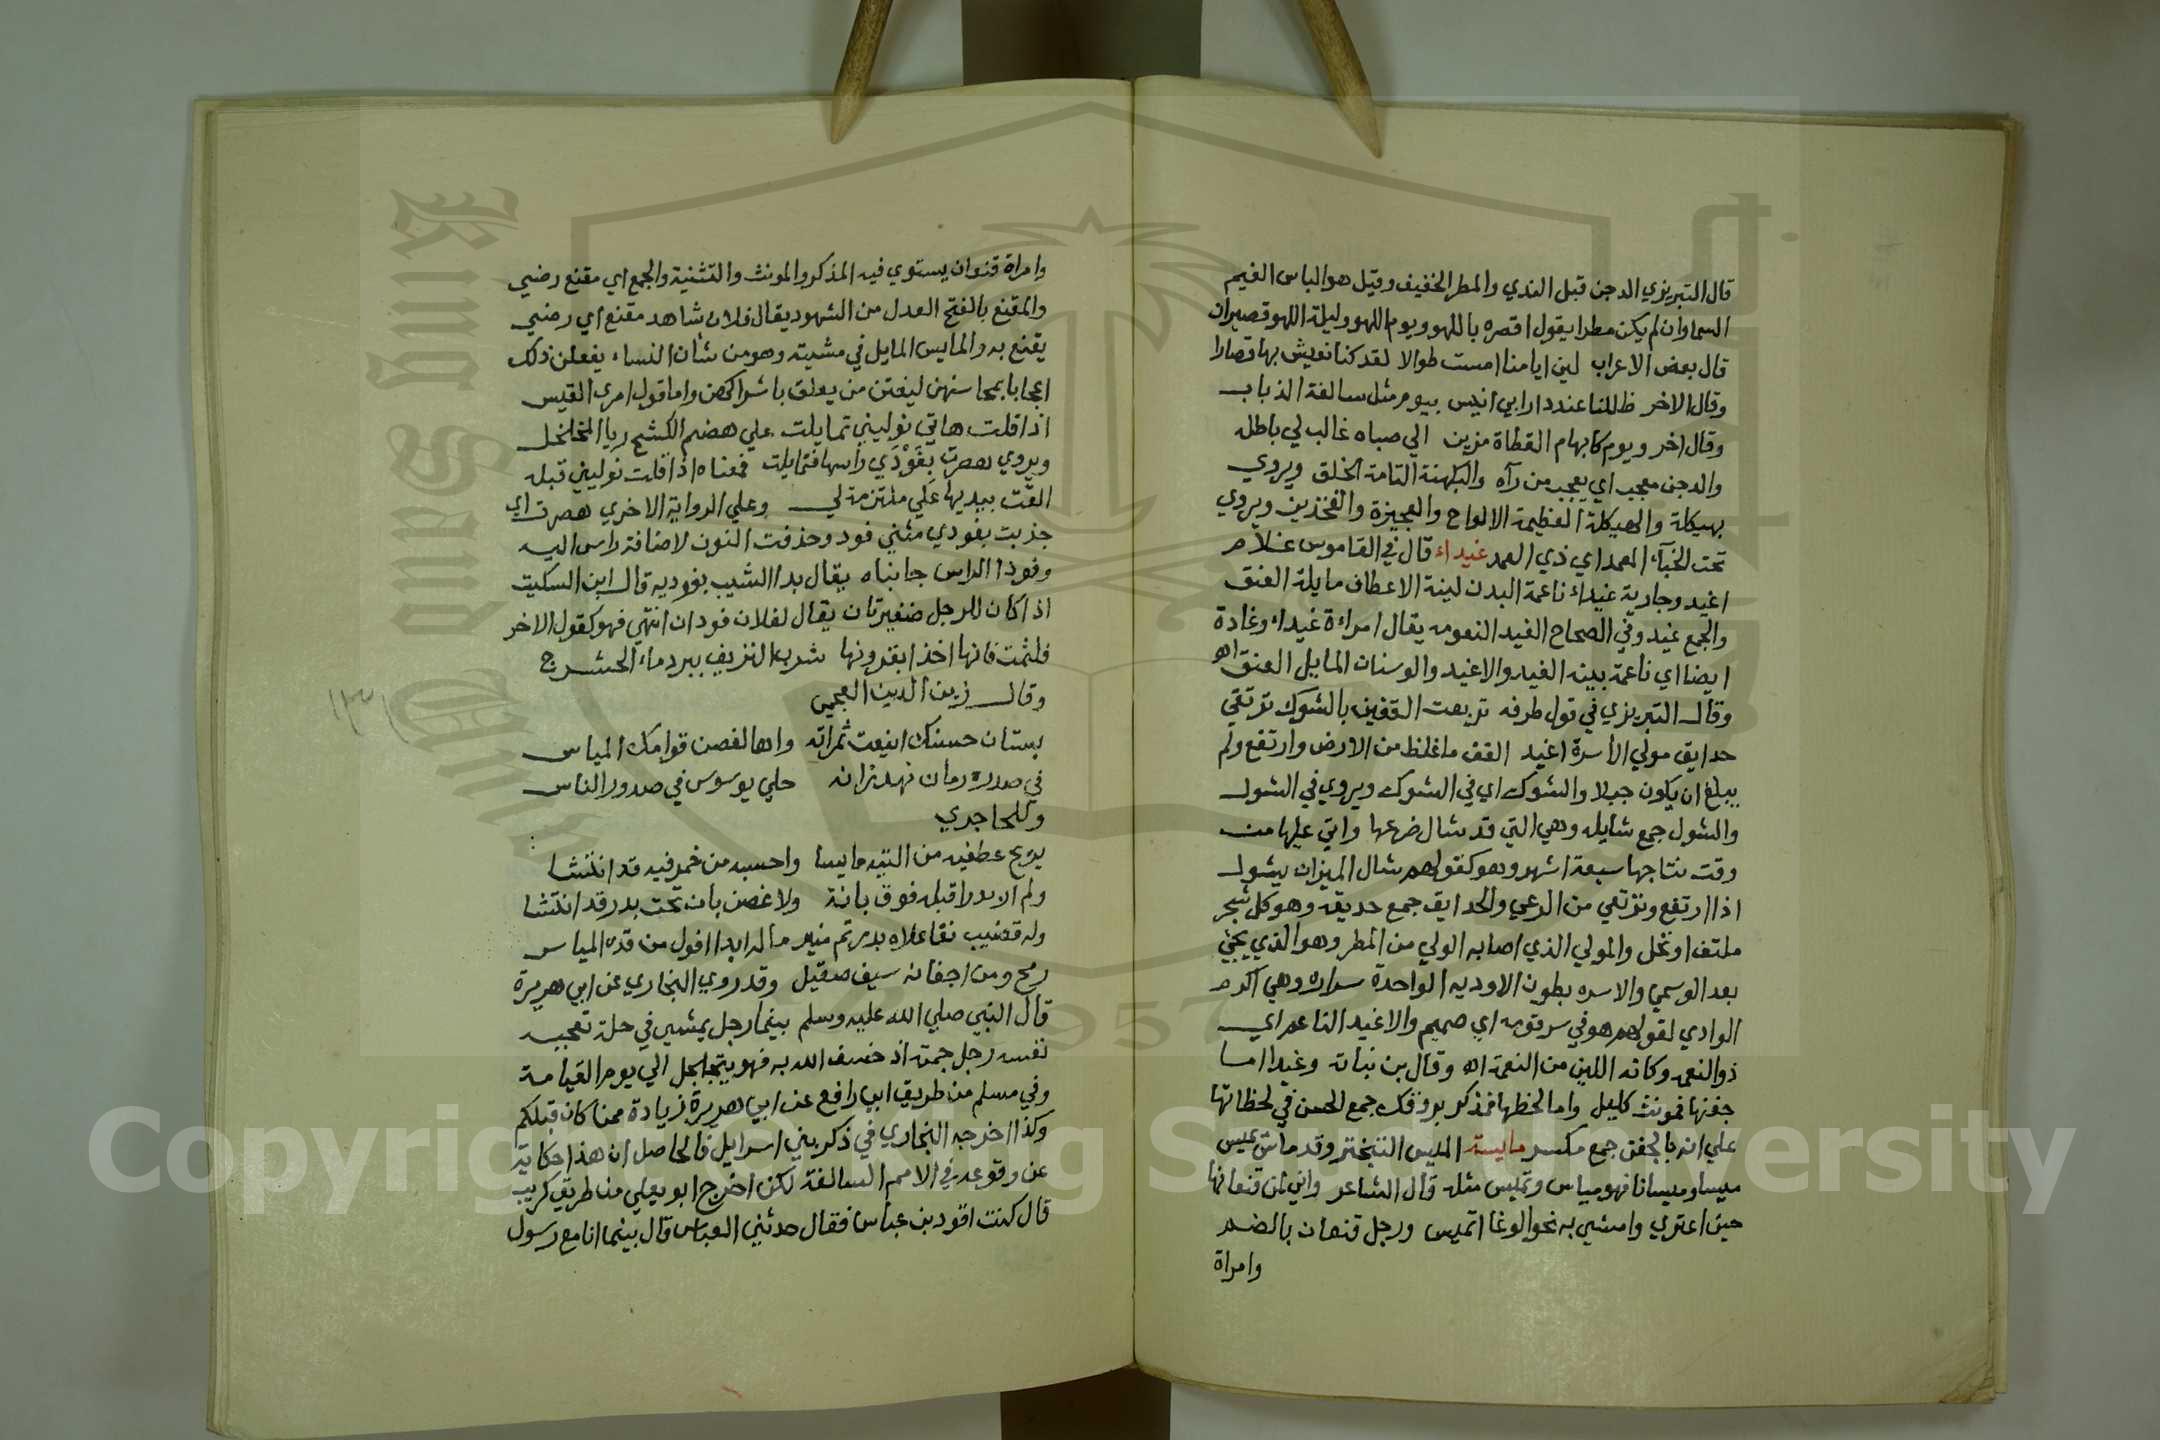 قال التبريزي الدجن قبل الندي والمطر الخفيف وقيل هو الباس الغيم
السما وان لم يكن مطرا يقول اقصره باللهو ويوم اللهو وليلة اللهو قصيران
قال بعض الاعراب لين ايامنا امست طوالا لقد كنا نعيش بها قصارا
وقال الاخر ظللنا عند دار ابي انيس بيوم مثل سالفة الذباب
وقال اخر ويوم كابهام القطاة مزين الي صباه غالب لي باطله
والدجن معجب اي يعجب من رآه والبكهنة التامة الخلق ويروي
بهيكلة والهيكلة العظيمة الالواح والعجيزة والفخذين ويروي
تحت الخبآء المعمد اي ذي العمد غيداء قال في القاموس غلام
اغيد وجارية غيداء ناعمة البدن لينة الاعطاف مايلة العنق
والجمع غيد وفي الصحاح الغيد النعومه يقال امراءة غيداء وغادة
ايضا اي ناعمة بينه الغيد والاغيد والوسنان المايل العنق اه
وقال التبريزي في قول طرفه تربعت القفين بالشوك ترتقي
حدايق مولي الأسرة اغيد القف ما غلظ من الارض وارتفع ولم
يبلغ ان يكون جبلا والشوك اي في الشوك ويروي في الشول
والشول جمع شايله وهي التي قد شال ضرعها واتي عليها من
وقت نتاجها سبعة اشهر وهو كقولهم شال الميزان يشول
اذا ارتفع وترتقي من الرعي والحدايق جمع حديقه وهو كل شجر
ملتف او نخل والمولي الذي اصابه الولي من المطر وهو الذي يجئ
بعد الوسمي والاسره بطون الاوديه الواحدة سراره وهي اكرم
الوادي لقولهم هو في سر قومه اي صميم والاغيد الناعم اي
ذو النعمه وكانه اللين من النعمة اه وقال بن نباته وغيدا اما
جفنها فمونث كليل واما لحظها فمذكر يروقك جمع الحسن في لحظاتها
علي انه بالجفن جمع مكسر مايسة الميس التبختر وقد ماس يميس
ميسا وميسانا فهو مياس وتميس مثله قال الشاعر واني لمن قنعانها
حين اعتزي وامشي به نحو الوغا اتميس ورجل قنعان بالضم
وامراة
وامراة قنعوان يستوي فيه المذكر والمونث والتثنية والجمع اي مقنع رضي
والمقنع بالفتح العدل من الشهود يقال فلان شاهد مقنع اي رضي
يقنع به والمايس المايل في مشيته وهو من شان النساء يفعلن ذلك
اعجابا بمحاسنهن ليفتن من يعلق باشراكهن واما قول امرى القيس
اذا قلت هاتي نوليني تمايلت علي هضيم الكشح ريا المخلخل
ويروي هصرت بِفَوْدَي راسها فتمايلت فمعناه اذا قلت نوليني قبله
القت بيديها عَلي ملتزمة لي وعلي الرواية الاخري هصرت اي
جذبت بفودي مثني فود وحذفت النون لاضافة راس اليه
وفودا الراس جانباه يقال بدا الشيب بفوديه قال ابن السكيت
اذا كان للرجل ضفيرتان يقال لفلان فودان انتهي فهو كقول الاخر
فلثمت فانها اخذا بقرونها شرب النزيف ببرد ماء الحشرج
وقال زين الدين العجمي
بستان حسنك اينعت ثمراته واها لغصن قوامك المياس
في صدره رمان نهد زانه حلي يوسوس في صدور الناس
وللحاجري
يرنح عطفيه من التيه مايسا واحسبه من خمر فيه قد انتشا
ولم ار بدرا قبله فوق بانة ولا غصن بان تحت بدر قد انتشا
وله قضيب نقا علاه بدر تم منير ما له ابدا افول من قده المياس
رمح ومن اجفانه سيف صقيل وقد روي البخاري عن ابي هريرة
قال النبي صلي الله عليه وسلم بينما رجل يمشي في حلة تعجبه
نفسه رجل جمته اذ خسف الله به فهو يتجلجل الي يوم القيامة
وفي مسلم من طريق ابي رافع عن ابي هريرة زيادة ممن كان قبلكم
وكذا اخرجه البخاري في ذكر بني اسرايل فالحاصل ان هذا حكاية
عن وقوعه في الامم السالفة لكن اخرج ابو يعلي من طريق كريب
قال كنت اقود بن عباس فقال حدثني العباس قال بينما انا مع رسول
١٣١
King Saud University
1957
Copyright © King Saud University